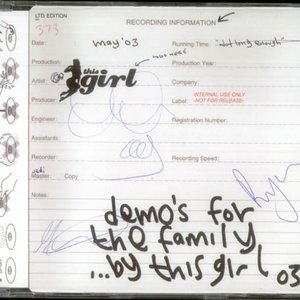 LTD. EDITION
RECORDING INFORMATION
373
Date: may '03
Running Time: "not long enough"
Production:
Production Year:
Artist: this girl
Company:
Producer
Label: INTERNAL USE ONLY
-NOT FOR RELEASE-
Engineer:
Registration Number:
Assistants:
Recorder:
Recording Speed:
Master: Copy
Notes:
demo's for
the family
...by this girl
03